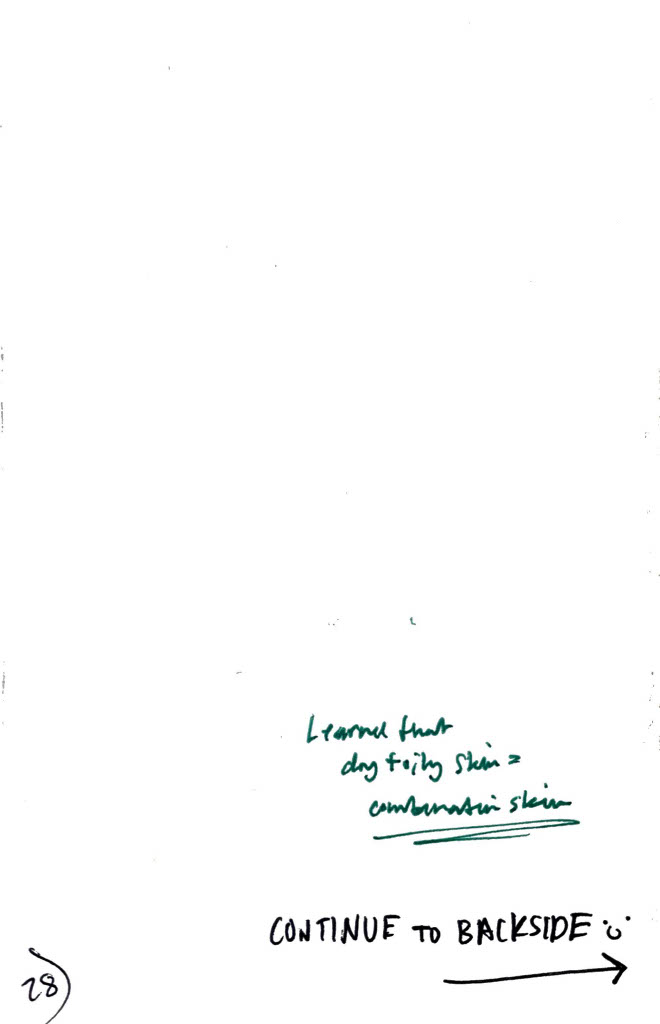 Learned that
dry + oily skin =
combination skin
CONTINUE TO BACKSIDE
28